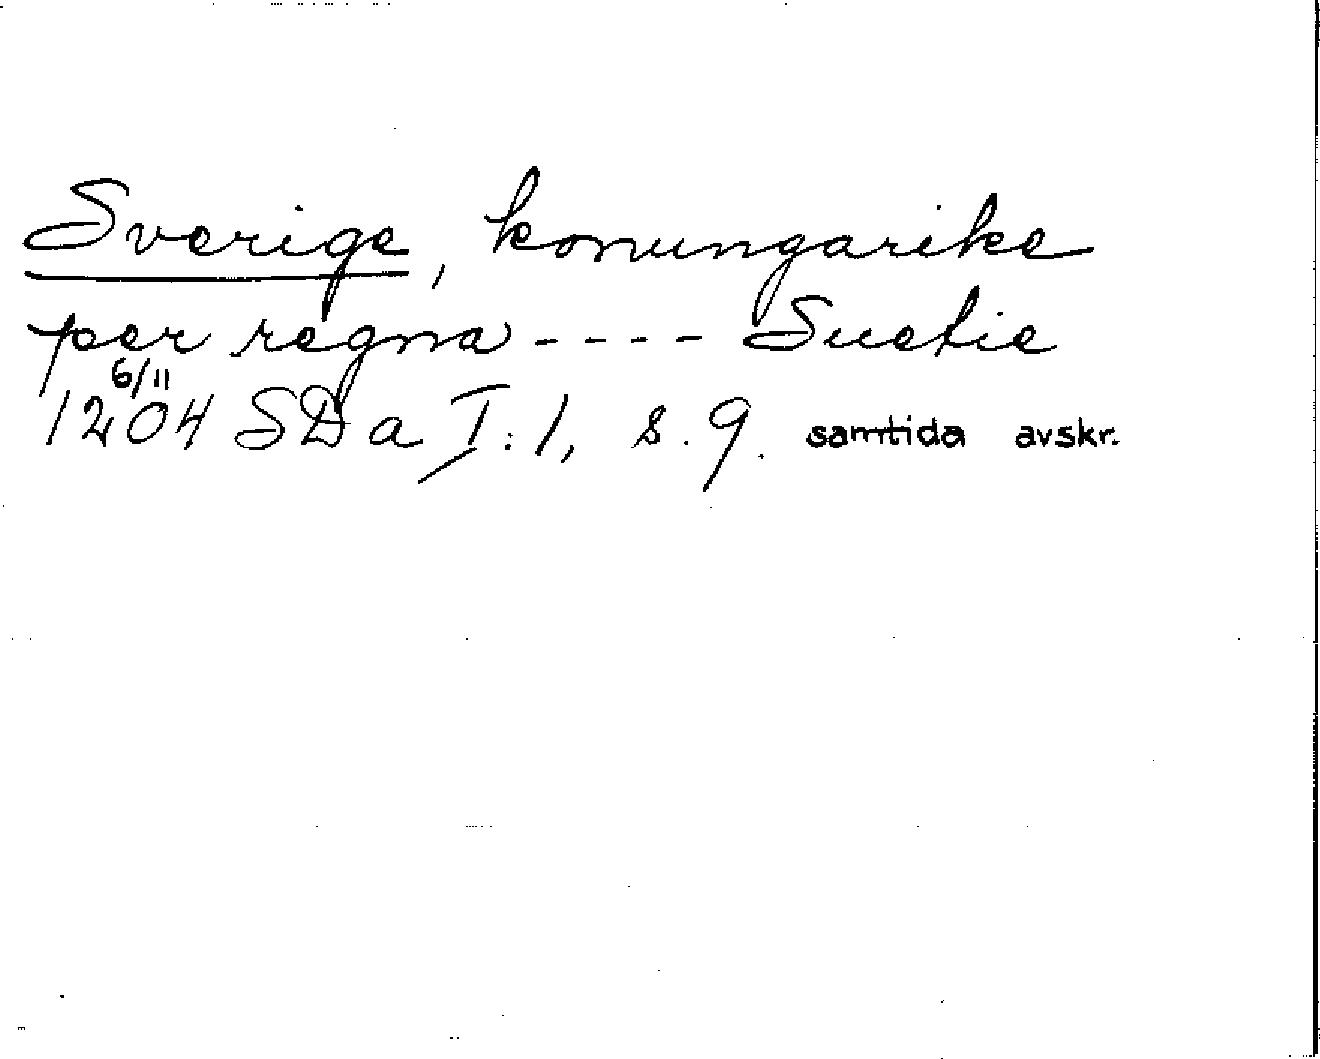 Sverige, konungarike
per regna ---- Suetie
6/11
1204 SDa I:1, s. 9. samtida avskr.